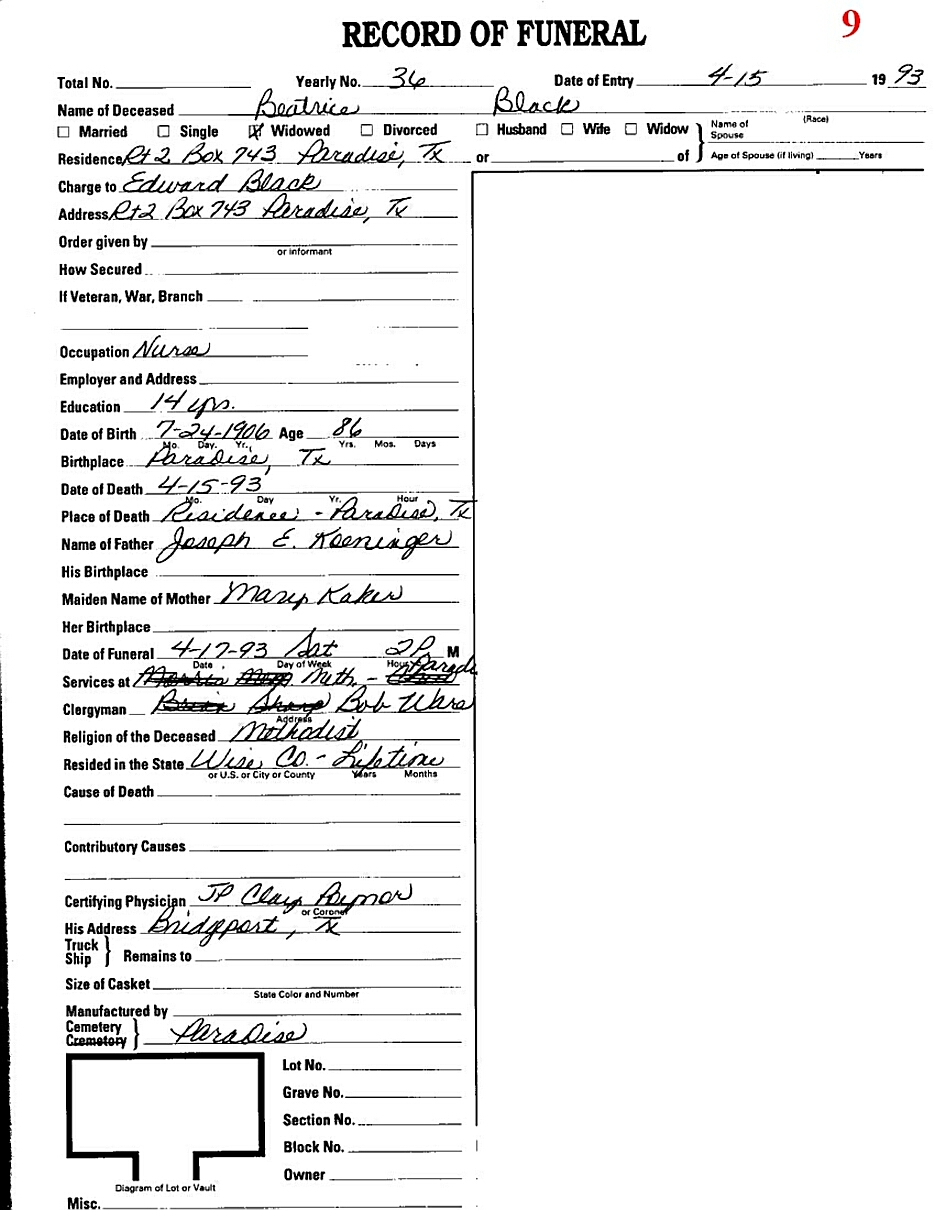 RECORD OF FUNERAL 9
Total No. Yearly No. 36 Date of Entry 4-15 19 93
Name of Deceased Beatrice Black (Race)
☐ Married ☐ Single ☒ Widowed ☐ Divorced ☐ Husband ☐ Wife ☐ Widow Name of Spouse
Residence Rt 2 Box 743 Paradise, Tx or of Age of Spouse (if living) Years
Charge to Edward Black
Address Rt 2 Box 743 Paradise, Tx
Order given by
or informant
How Secured
If Veteran, War, Branch
Occupation Nurse
Employer and Address
Education 14 yrs.
Date of Birth 7-24-1906 Age 86
Mo. Day. Yr., Yrs. Mos. Days
Birthplace Paradise, Tx
Date of Death 4-15-93
Mo. Day Yr. Hour
Place of Death Residence - Paradise, Tx
Name of Father Joseph E. Koeninger
His Birthplace
Maiden Name of Mother Mary Kaker
Her Birthplace
Date of Funeral 4-17-93 Sat 2 P. M
Date Day of Week Hour
Services at Meth. - Parad
Clergyman Bob Ware
Address
Religion of the Deceased Methodist
Resided in the State Wise Co. - Lifetime
or U.S. or City or County Years Months
Cause of Death
Contributory Causes
Certifying Physician JP Clay Poynor
or Coroner
His Address Bridgeport, Tx
Truck
Ship Remains to
Size of Casket
State Color and Number
Manufactured by
Cemetery
Crematory Paradise
Lot No.
Grave No.
Section No.
Block No.
Owner
Diagram of Lot or Vault
Misc.